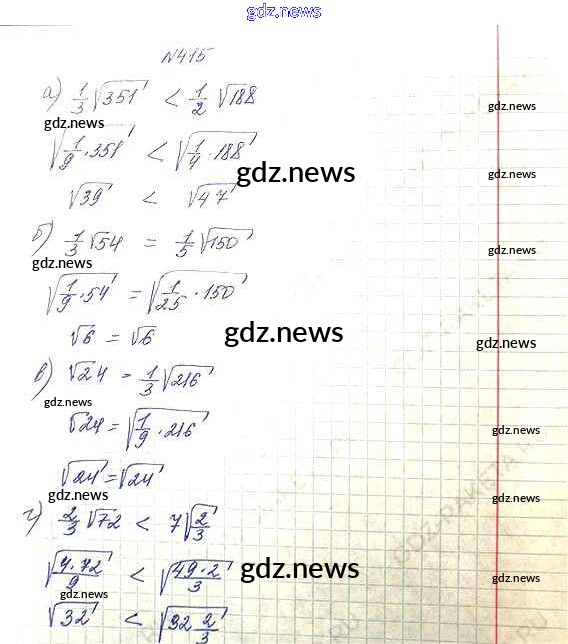 gdz.news
N415
а) 1/3 √351 < 1/2 √188
gdz.news
gdz.news
√(1/9 · 351) < √(1/4 · 188)
gdz.news
gdz.news
√39 < √47
б) 1/3 √54 = 1/5 √150
gdz.news
gdz.news
√(1/9 · 54) = √(1/25 · 150)
√6 = √6
gdz.news
gdz.news
в) √24 = 1/3 √216
gdz.news
√24 = √(1/9 · 216)
gdz.news
√24 = √24
gdz.news
gdz.news
г) 2/3 √72 < 7 √(2/3)
√(4·72/9) < √(49·2/3)
gdz.news
gdz.news
gdz.news
√32 < √(32 2/3)